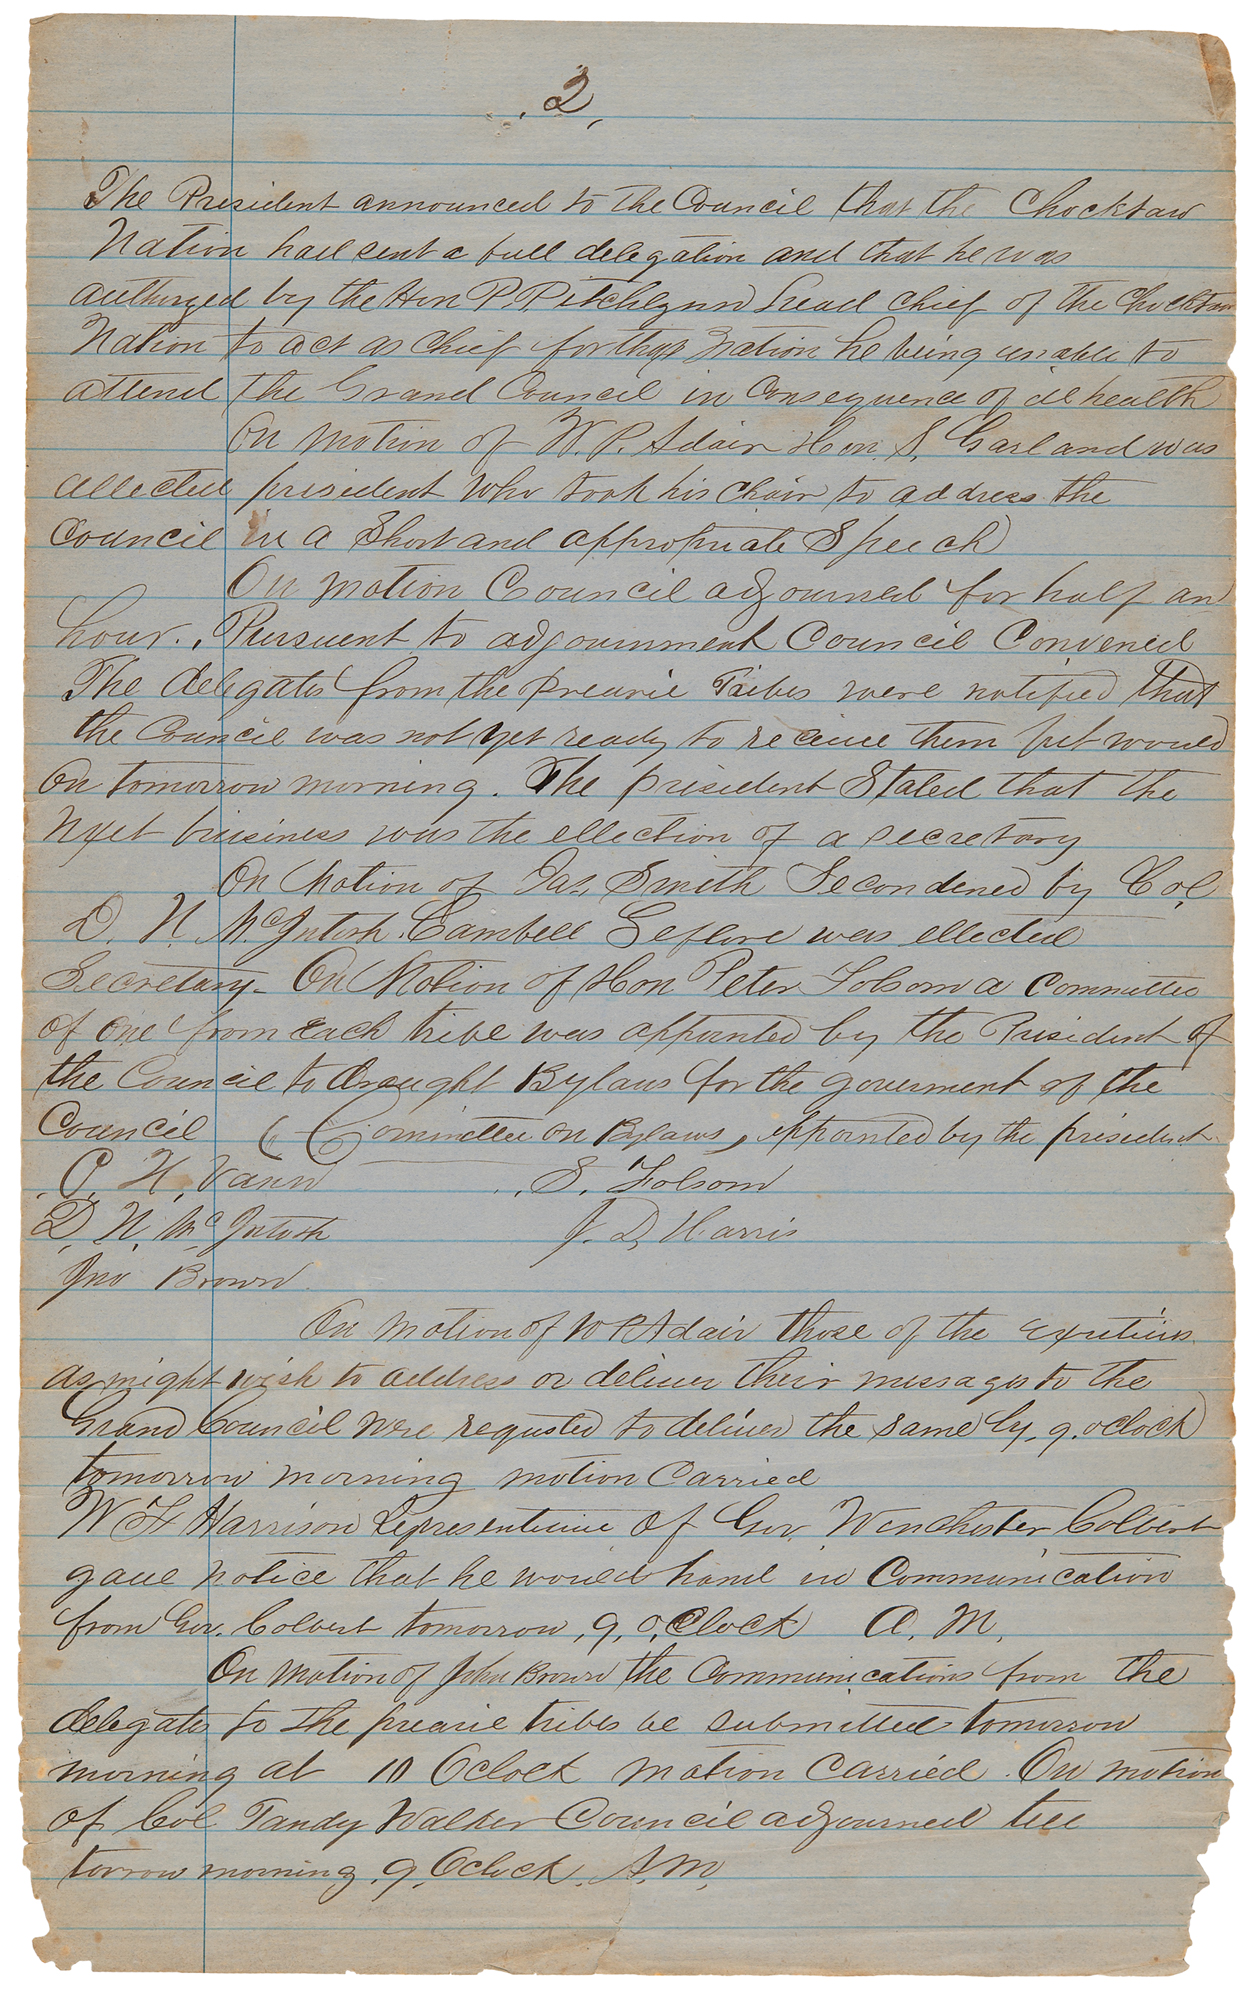 . 2,
The President announced to the Council that the Chocktaw
Nation had sent a full delegation and that he was
autherized by the Hon P. Pitchlynn Head chief of the Chocktaw
Nation to act as chief for that Nation he being unable to
attend the Grand Council in Consequence of ill health
On Motion of W. P. Adair Hon. S. Garland was
ellected president who took his chair to address the
Council in a Short and appropriate Speech
On Motion Council adjourned for half an
hour. , Pursuent to adjournment Council Convened
The delegates from the prearie Tribes were notified that
the Council was not yet ready to receive them but would
On tomorrow morning. The president Stated that the
next buisiness was the ellection of a secretary
On Motion of Jas. Smith Secondened by Col,
D. N. McIntosh. Cambell Leflore was ellected
Secretary- On Motion of Hon Peter Folsom a Committee
of one from each tribe was appointed by the President of
the Council to draught Bylaws for the goverment of the
Council ( Committee on Bylaws, appointed by the president
C. H. Vann . S. Folsom
D. N. Mc Intosh J. D. Harris
Jno Brown
On motion of W P Adair those of the
as might wish to address or deliver their messages to the
Grand Council were requsted to deliver the same by, 9. oclock
tomorrow morning motion Carried
W F Harrison Representive of Gov. Wenchester Colbert
gave notice that he would hand in Communication
from Gov. Colbert tomorrow, 9, o,Clock A. M,
On Motion of John Brown the Communications from the
delegates to the prearie tribes be submitted tomorrow
morning at 10 Oclock motion Carried. On motion
of Col Tandy Walker Council adjourned till
torrow morning, 9, Oclock. A. M,